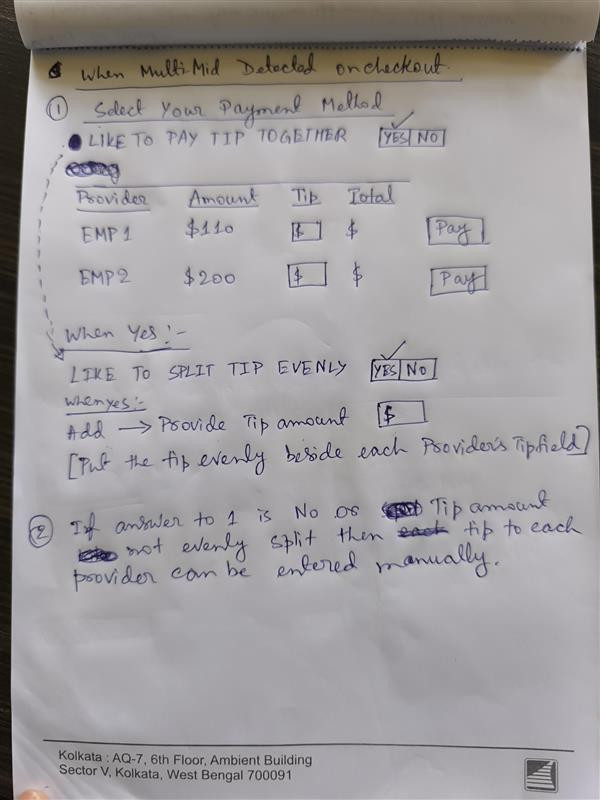 When Multi-Mid Detected on checkout.
① Select Your Payment Method
LIKE TO PAY TIP TOGETHER YES NO
Provider Amount Tip Total
EMP 1 $110 $ $ Pay
EMP 2 $200 $ $ Pay
When Yes :-
LIKE TO SPLIT TIP EVENLY YES NO
When yes :-
Add → Provide Tip amount $
[Put the tip evenly beside each Provider's Tip field]
② If answer to 1 is No or Tip amount
not evenly split then each tip to each
provider can be entered manually.
Kolkata : AQ-7, 6th Floor, Ambient Building
Sector V, Kolkata, West Bengal 700091